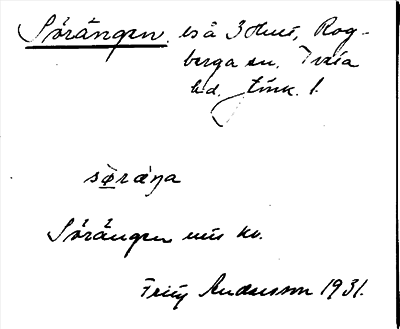 Sörängen, ls å 3 Hus, Rog-
berga sn, Tveta
hd. Jönk. l.
sø̀ráŋa
Sörängen
Fritz Andersson 1931.